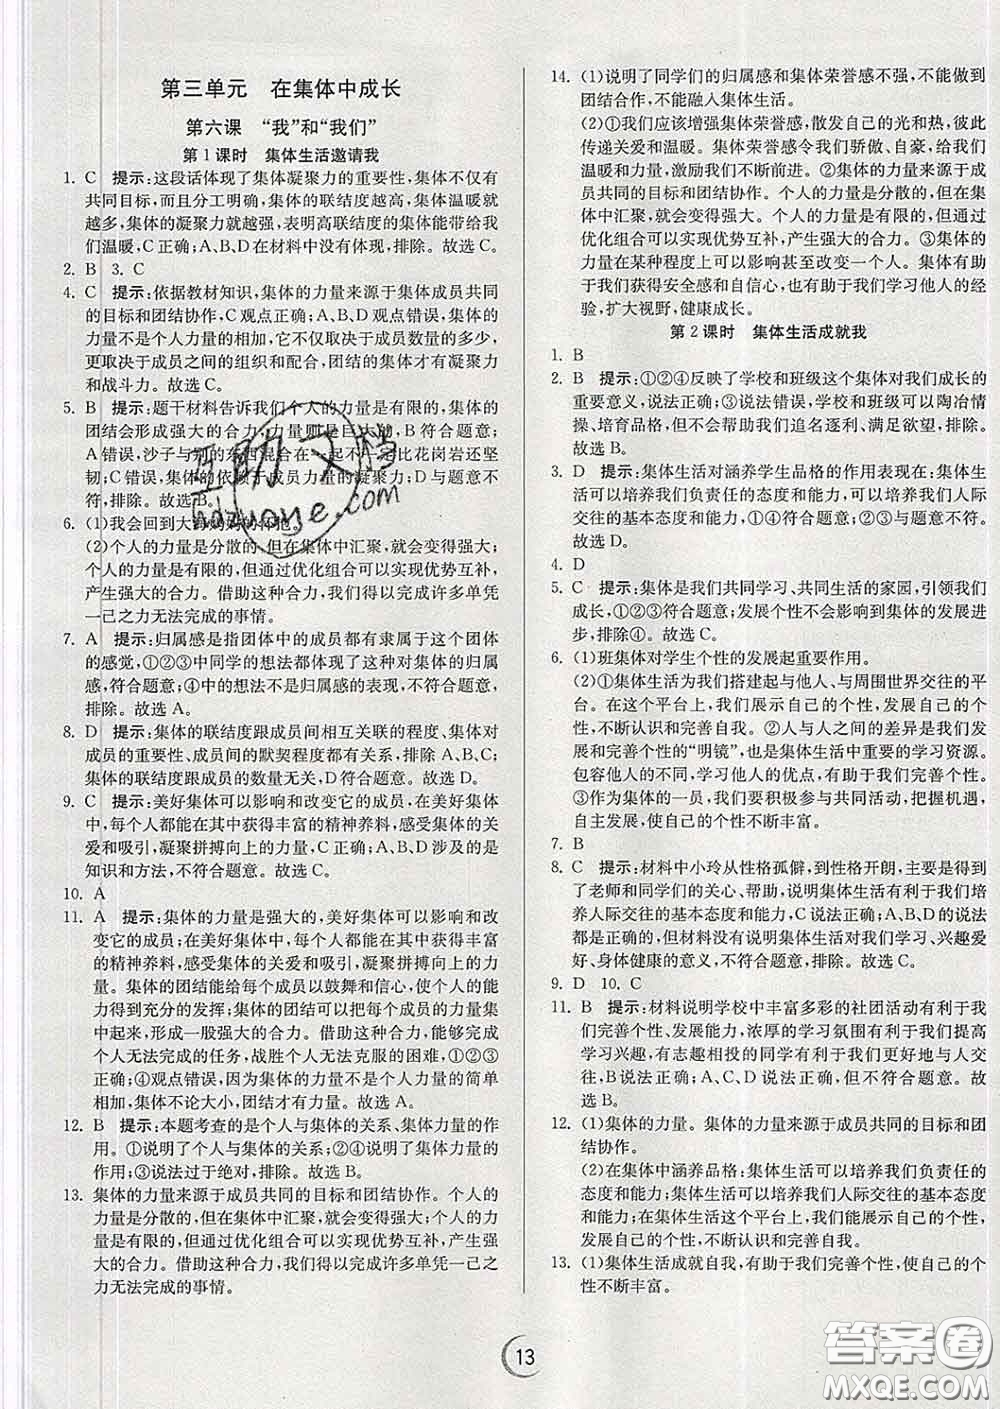 第三单元　在集体中成长
第六课　“我”和“我们”
第1课时　集体生活邀请我
1. C　提示:这段话体现了集体凝聚力的重要性,集体不仅有
共同目标,而且分工明确,集体的联结度越高,集体温暖就
越多,集体的凝聚力就越强,表明高联结度的集体能带给我
们温暖,C正确;A、B、D在材料中没有体现,排除。故选C。
2. B　3. C
4. C　提示:依据教材知识,集体的力量来源于集体成员共同
的目标和团结协作,C观点正确;A、B、D观点错误,集体的
力量不是个人力量的相加,它不取决于成员数量的多少,
更取决于成员之间的组织和配合,团结的集体才有凝聚力
和战斗力。故选C。
5. B　提示:题干材料告诉我们个人的力量是有限的,集体的
团结会形成强大的合力,力量则是巨大的,B符合题意;
A错误,沙子与别的东西混合在一起不一定比花岗岩还坚
韧;C错误,集体的依赖于成员力量的凝聚力;D与题意不
符,排除。故选B。
6. (1)我会回到大海妈妈的怀抱。
(2)个人的力量是分散的,但在集体中汇聚,就会变得强大;
个人的力量是有限的,但通过优化组合可以实现优势互补,
产生强大的合力。借助这种合力,我们得以完成许多单凭
一己之力无法完成的事情。
7. A　提示:归属感是指团体中的成员都有隶属于这个团体
的感觉,①②③中同学的想法都体现了这种对集体的归属
感,符合题意;④中的想法不是归属感的表现,不符合题意,
排除。故选A。
8. D　提示:集体的联结度跟成员间相互关联的程度、集体对
成员的重要性、成员间的默契程度都有关系,排除A、B、C;
集体的联结度跟成员的数量无关,D符合题意。故选D。
9. C　提示:美好集体可以影响和改变它的成员,在美好集体
中,每个人都能在其中获得丰富的精神养料,感受集体的关
爱和吸引,凝聚拼搏向上的力量,C正确;A、B、D涉及的是
知识和方法,不符合题意,排除。故选C。
10. A
11. A　提示:集体的力量是强大的,美好集体可以影响和改
变它的成员;在美好集体中,每个人都能在其中获得丰富
的精神养料,感受集体的关爱和吸引,凝聚拼搏向上的力
量。集体可以给每个成员以鼓舞和信心,使他们的潜能
得到充分的发挥;集体的团结可以把每个成员的力量集
中起来,形成一股强大的合力。借助这种合力,能够完成
个人无法完成的任务,战胜个人无法克服的困难,①②③
正确;④观点错误,因为集体的力量不是个人力量的简单
相加,集体不论大小,团结才有力量。故选A。
12. B　提示:本题考查的是个人与集体的关系、集体力量的作
用。①说明了个人与集体的关系;②④说明了集体力量的
作用;③说法过于绝对,排除。故选B。
13. 集体的力量来源于成员共同的目标和团结协作。个人的
力量是分散的,但在集体中汇聚,就会变得强大;个人的力
量是有限的,但通过优化组合可以实现优势互补,产生强
大的合力。借助这种合力,我们得以完成许多单凭一己之
力无法完成的事情。
14. (1)说明了同学们的归属感和集体荣誉感不强,不能做到
团结合作,不能融入集体生活。
(2)①我们应该增强集体荣誉感,散发自己的光和热,彼此
传递关爱和温暖。集体荣誉感令我们骄傲、自豪,给我们
温暖和力量,激励我们不断前进。②集体的力量来源于成
员共同的目标和团结协作。个人的力量是分散的,但在
集体中汇聚,就会变得强大;个人的力量是有限的,但通过
优化组合可以实现优势互补,产生强大的合力。③集体的
力量在某种程度上可以影响甚至改变一个人。集体让我
们获得安全感和自信心,也有助于我们学习他人的经
验,扩大视野,健康成长。
第2课时　集体生活成就我
1. B
2. B　提示:①②④反映了学校和班级这个集体对我们成长的
重要意义,说法正确;③说法错误,学校和班级可以陶冶情
操、培育品格,但不会帮助我们追名逐利、满足欲望,排除。
故选B。
3. D　提示:集体生活对涵养学生品格的作用表现在:集体生
活可以培养我们负责任的态度和能力,可以培养我们人际
交往的基本态度和能力,①④符合题意;②③不符合题意,
排除。故选D。
4. D
5. C　提示:集体是我们共同学习、共同生活的家园,引领我们
成长,①②③符合题意;发展个性不会影响到集体的发展进
步,排除④。故选C。
6. (1)班集体对学生个性的发展起重要作用。
(2)①集体生活为我们搭建起与他人、与周围世界交往的平
台。在这个平台上,我们可以展示自己的个性,发展自己的个
性,不断认识和完善自我。②人与人之间的差异是我们发
展和完善个性的“明镜”,也是集体生活中重要的学习资源。
包容他人的不同,学习他人的优点,有助于我们完善个性。
③作为集体的一员,我们要积极参与共同活动,把握机遇,
自主发展,使自己的个性不断丰富。
7. B
8. C　提示:材料中小玲从性格孤僻,到性格开朗,主要是得到
了老师和同学们的关心、帮助,说明集体生活有利于我们培
养人际交往的基本态度和能力,C说法正确;A、B、D的说法
都正确,但材料没有说明集体生活对我们学习、兴趣爱
好、身体健康的意义,不符合题意,排除。故选C。
9. D　10. C
11. B　提示:材料说明学校中丰富多彩的社团活动有利于我
们完善个性、发展能力,浓厚的学习氛围有利于我们提高
学习兴趣,有志趣相投的同学有利于我们更好地与人交
往,B正确;A、C、D说法正确,但不符合题意,排除。故
选B。
12. (1)集体的力量。集体的力量来源于成员共同的目标和团
结协作。
(2)在集体中涵养品格:集体生活可以培养我们负责任的
态度和能力;集体生活可以培养我们人际交往的基本态度
和能力;在集体生活这个平台上,我们能展示自己的个性,
发展自己的个性,不断认识和完善自我。
13. (1)集体生活成就自我,有助于我们完善个性,使自己的个
性不断丰富。
13
互助文档
hdzuoye.com
答案圈
MXQE.COM